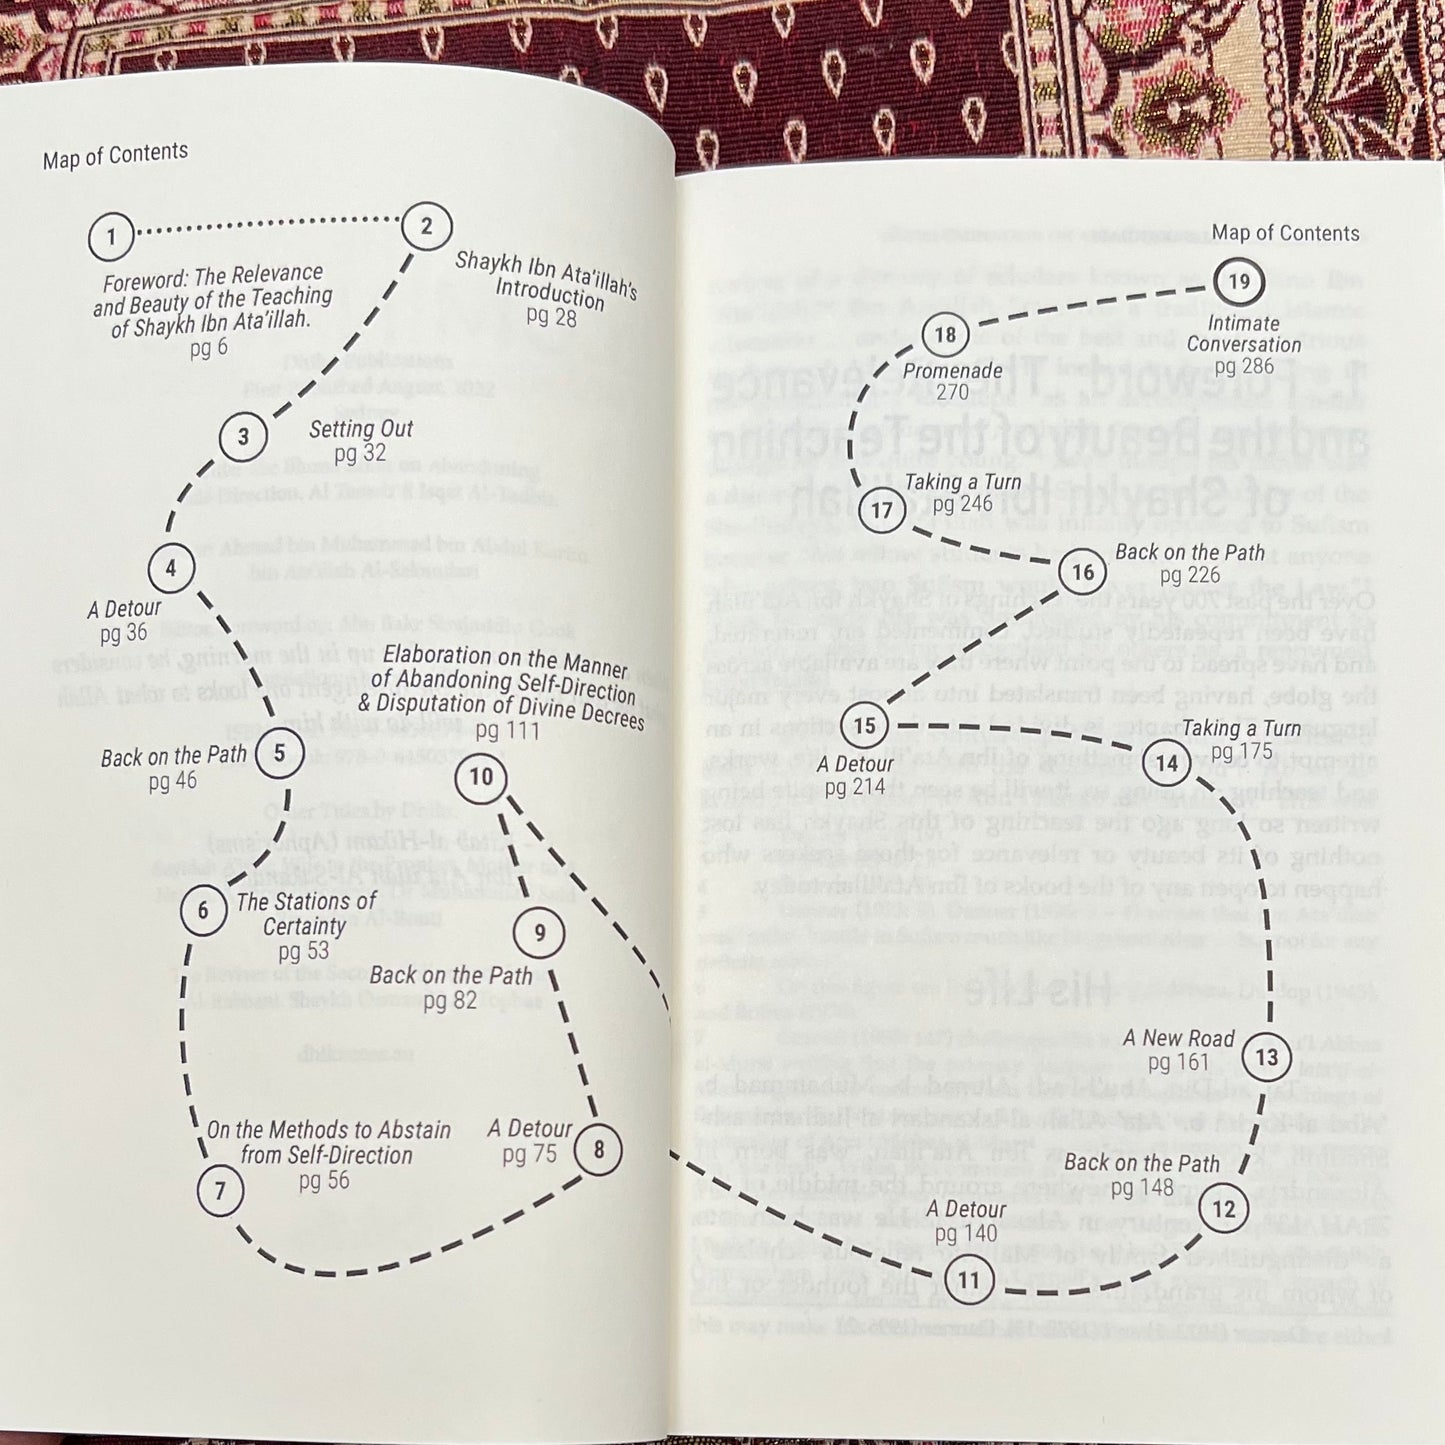 Map of Contents
1
2
Foreword: The Relevance
and Beauty of the Teaching
of Shaykh Ibn Ata'illah.
pg 6
Shaykh Ibn Ata'illah's
Introduction
pg 28
3
Setting Out
pg 32
4
A Detour
pg 36
5
Back on the Path
pg 46
6
The Stations of
Certainty
pg 53
7
On the Methods to Abstain
from Self-Direction
pg 56
8
A Detour
pg 75
9
Back on the Path
pg 82
Elaboration on the Manner
of Abandoning Self-Direction
& Disputation of Divine Decrees
pg 111
10
Map of Contents
19
Intimate
Conversation
pg 286
18
Promenade
270
17
Taking a Turn
pg 246
16
Back on the Path
pg 226
15
A Detour
pg 214
14
Taking a Turn
pg 175
A New Road
pg 161
13
Back on the Path
pg 148
12
A Detour
pg 140
11